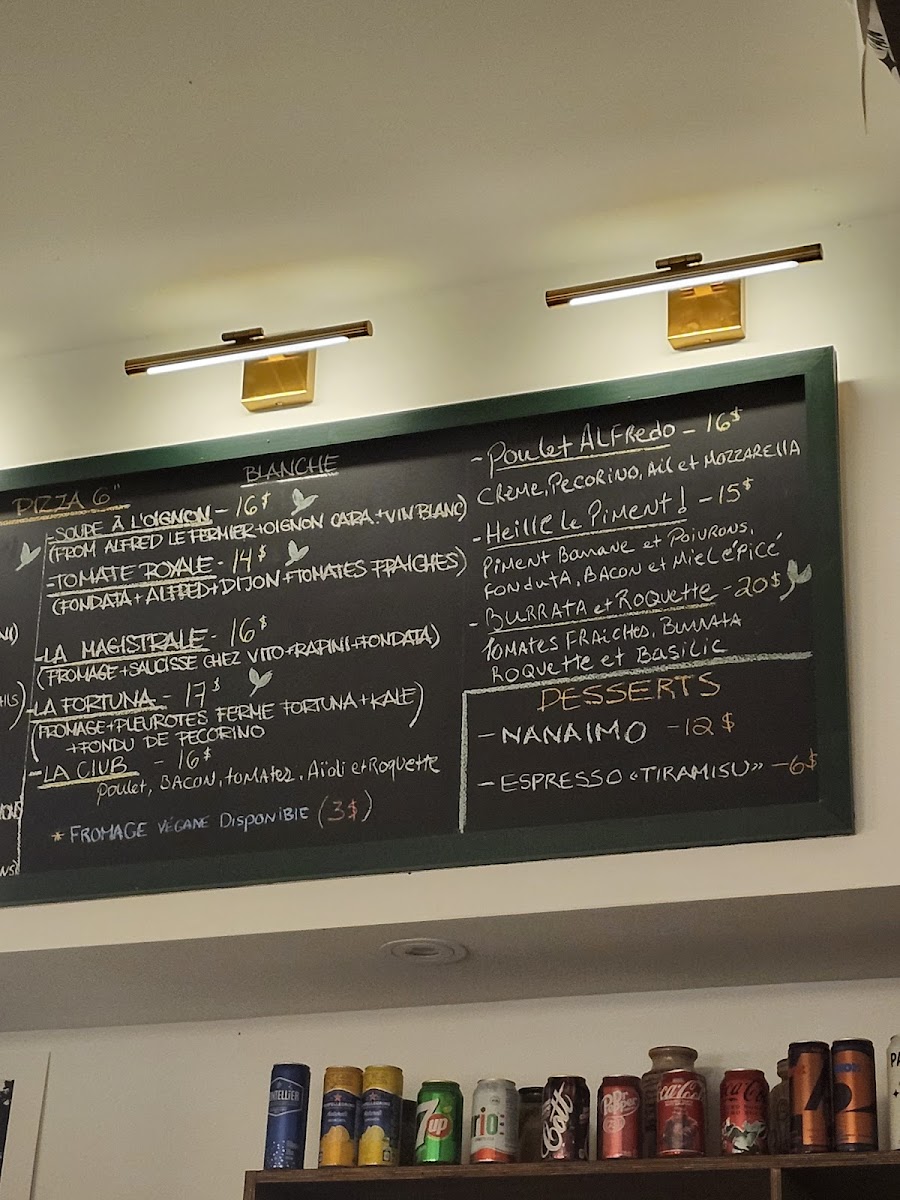 PIZZA 6"
BLANCHE
-SOUPE À L'OIGNON - 16$
(FROM ALFRED LE FERMIER+OIGNON CARA.+VIN BLANC)
-TOMATE ROYALE - 14$
(FONDATA+ALFRED+DIJON+TOMATES FRAICHES)
-LA MAGISTRALE - 16$
(FROMAGE+SAUCISSE CHEZ VITO+RAPINI+FONDATA)
-LA FORTUNA - 17$
(FROMAGE+PLEUROTES FERME FORTUNA+KALE)
+FONDU DE PECORINO
-LA CLUB - 16$
Poulet, BACON, tomates, Aïoli et Roquette
* FROMAGE VÉGANE DISPONIBLE (3$)
- Poulet ALFRedo - 16$
CRÈME, PECORINO, AIL et MOZZARELLA
- Heille le Piment! - 15$
Piment Banane et Poivrons,
FONDUTA, BACON et Miel épicé
- BURRATA et Roquette - 20$
TOMATES FRAICHES, BURRATA
ROQUETTE et BASILIC
DESSERTS
- NANAIMO - 12$
- ESPRESSO «TIRAMISU» - 6$
7up
rio:
Cott
Dr Pepper
Coca-Cola
Coca-Cola